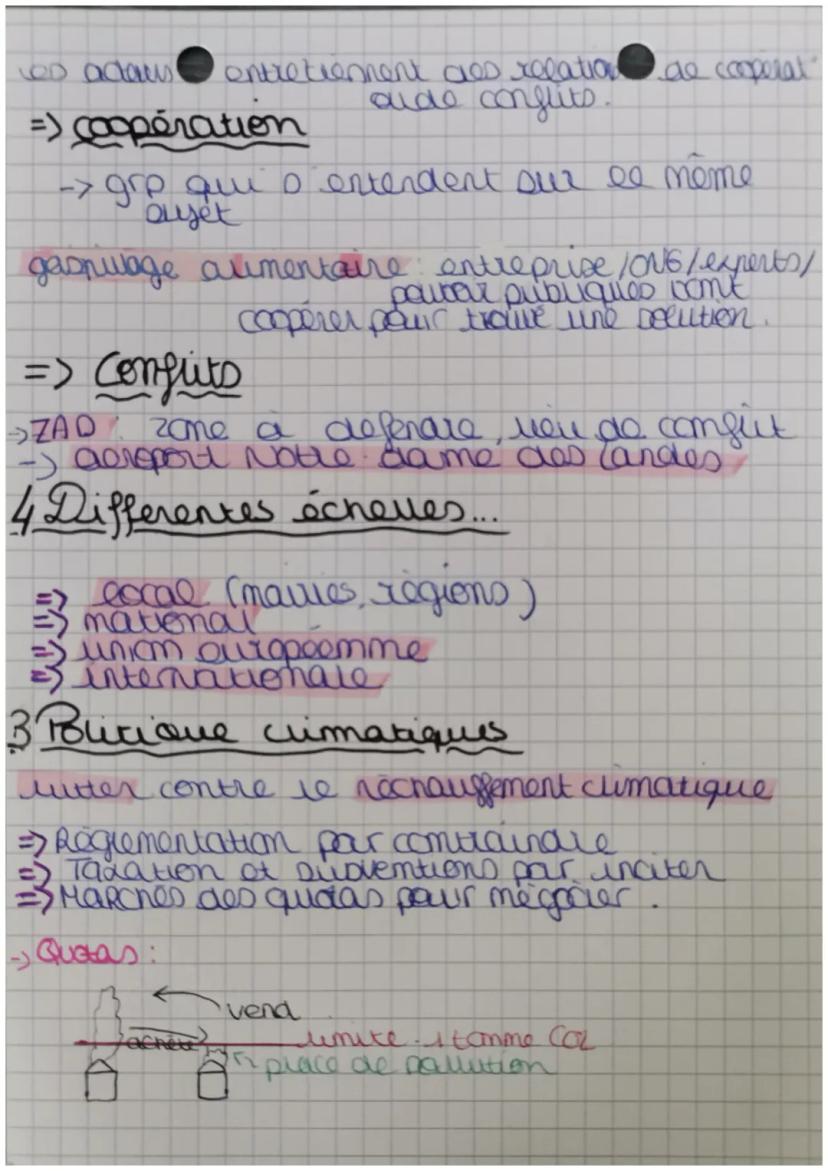 les acteurs entretiennent des relation de coopérat°
ou de conflits.
=> coopération
-> grp qui s'entendent sur le même
sujet
gaspillage alimentaire : entreprise/ONG/experts/
pouvoir publiques vont
coopérer pour trouvé une solution.
=> Conflits
-> ZAD : zone à défendre, lieu de conflit
-> aéroport Notre dame des Landes
4 Differentes échelles...
=> local (mairies, régions)
=> national
=> union européenne
=> internationale
3 Politique climatiques
lutter contre le réchauffement climatique
=> Réglementation par contraindre
=> Taxation et subventions par inciter
=> Marchés des quotas pour négocier.
-> Quotas :
vend
achète limite 1 tonne CO2
place de pollution